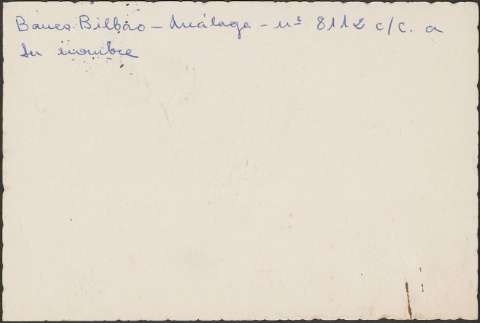 Banco Bilbao - Málaga - nº 8112 c/c. a
su nombre